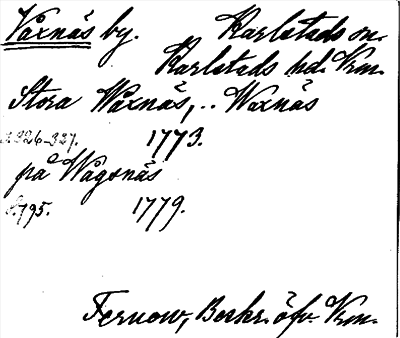 Våxnäs by. Karlstads sn.
Karlstads hd. Vrm.
Stora Wåxnäs, .. Waxnäs
s. 326-327. 1773.
på Wågsnäs
s. 795. 1779.
Fernow, Beskr. öfv. Vrm.